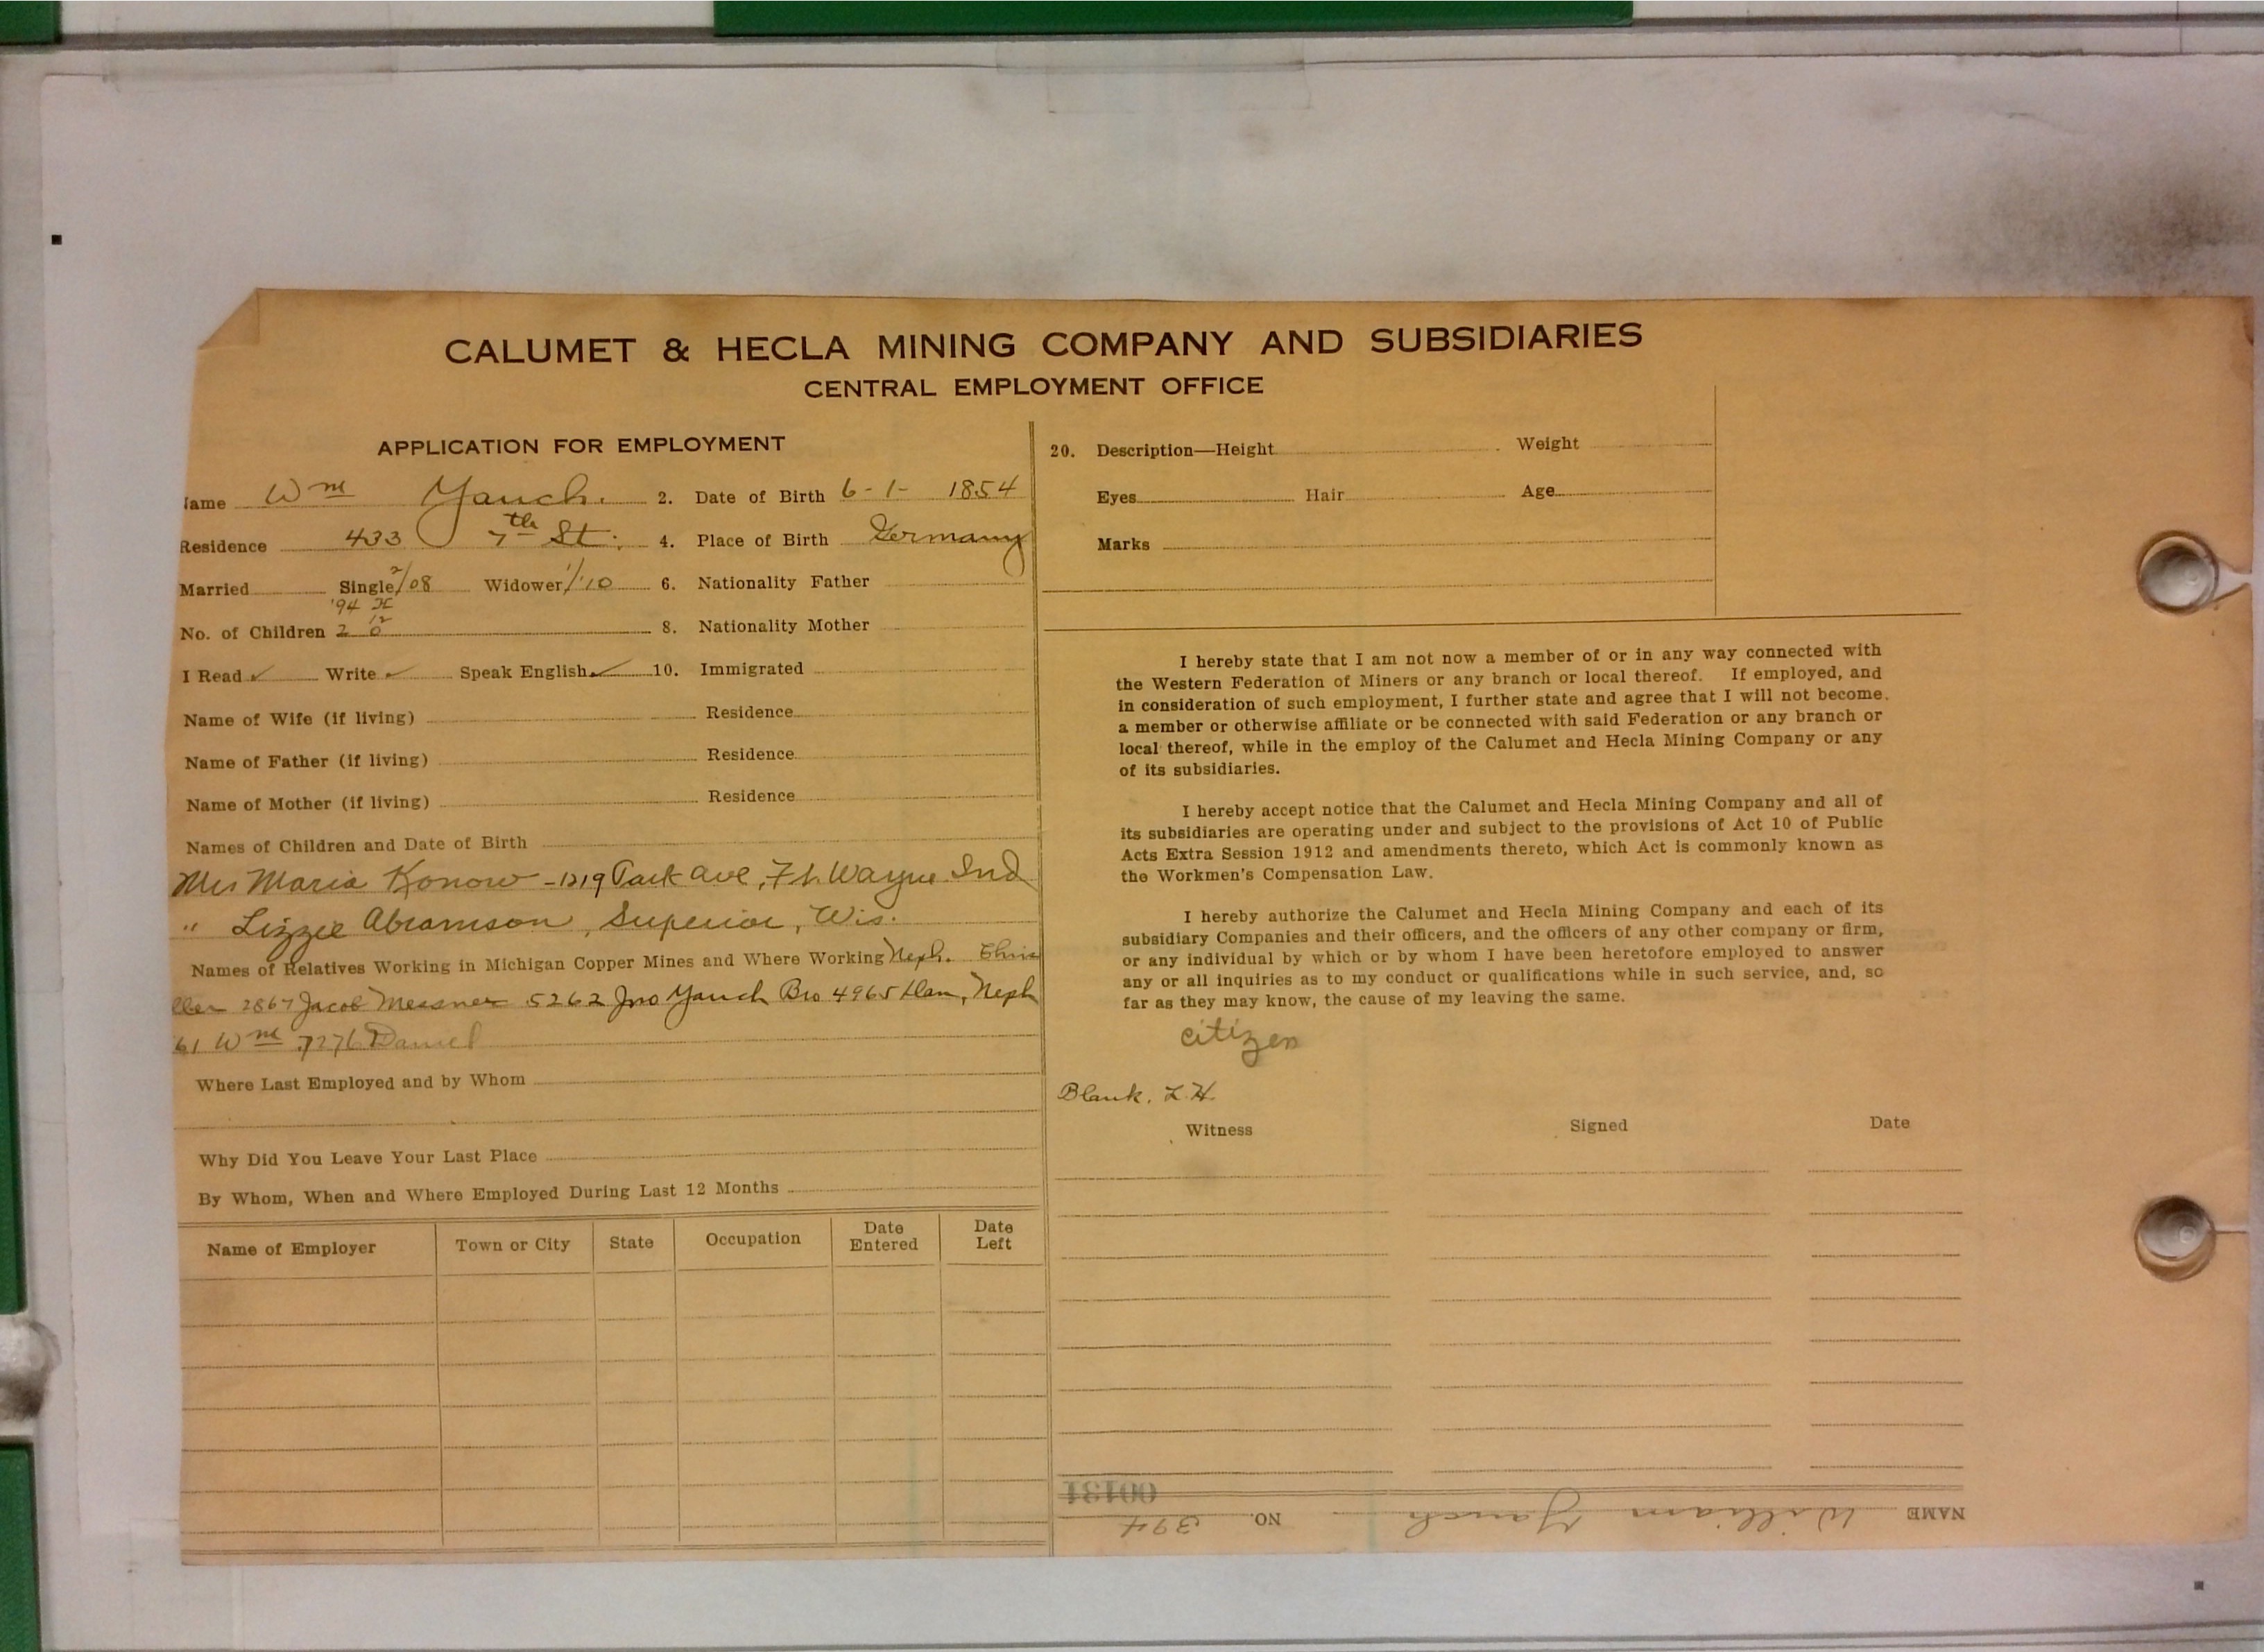 CALUMET & HECLA MINING COMPANY AND SUBSIDIARIES
CENTRAL EMPLOYMENT OFFICE
APPLICATION FOR EMPLOYMENT
Name Wm Yauch. 2. Date of Birth 6-1- 1854
Residence 433 7th St. 4. Place of Birth Germany
Married Single 2/08 Widower 1/'10 6. Nationality Father
'94
No. of Children 2 8. Nationality Mother
I Read ✓ Write ✓ Speak English ✓ 10. Immigrated
Name of Wife (if living) Residence
Name of Father (if living) Residence
Name of Mother (if living) Residence
Names of Children and Date of Birth
Mrs Maria Konow - 1219 Park Ave, Ft. Wayne Ind
" Lizzie Abramson, Superior, Wis.
Names of Relatives Working in Michigan Copper Mines and Where Working Neph.
2867 Jacob Messner 5262 Jno Yauch Bro 4965 Dan, Neph
61 Wm 7276 Daniel
Where Last Employed and by Whom
Why Did You Leave Your Last Place
By Whom, When and Where Employed During Last 12 Months
Name of Employer Town or City State Occupation Date Entered Date Left
20. Description—Height Weight
Eyes Hair Age
Marks
I hereby state that I am not now a member of or in any way connected with
the Western Federation of Miners or any branch or local thereof. If employed, and
in consideration of such employment, I further state and agree that I will not become
a member or otherwise affiliate or be connected with said Federation or any branch or
local thereof, while in the employ of the Calumet and Hecla Mining Company or any
of its subsidiaries.
I hereby accept notice that the Calumet and Hecla Mining Company and all of
its subsidiaries are operating under and subject to the provisions of Act 10 of Public
Acts Extra Session 1912 and amendments thereto, which Act is commonly known as
the Workmen's Compensation Law.
I hereby authorize the Calumet and Hecla Mining Company and each of its
subsidiary Companies and their officers, and the officers of any other company or firm,
or any individual by which or by whom I have been heretofore employed to answer
any or all inquiries as to my conduct or qualifications while in such service, and, so
far as they may know, the cause of my leaving the same.
citizen
Blank, L.H.
Witness Signed Date
NAME William Yauch NO. 394
00131